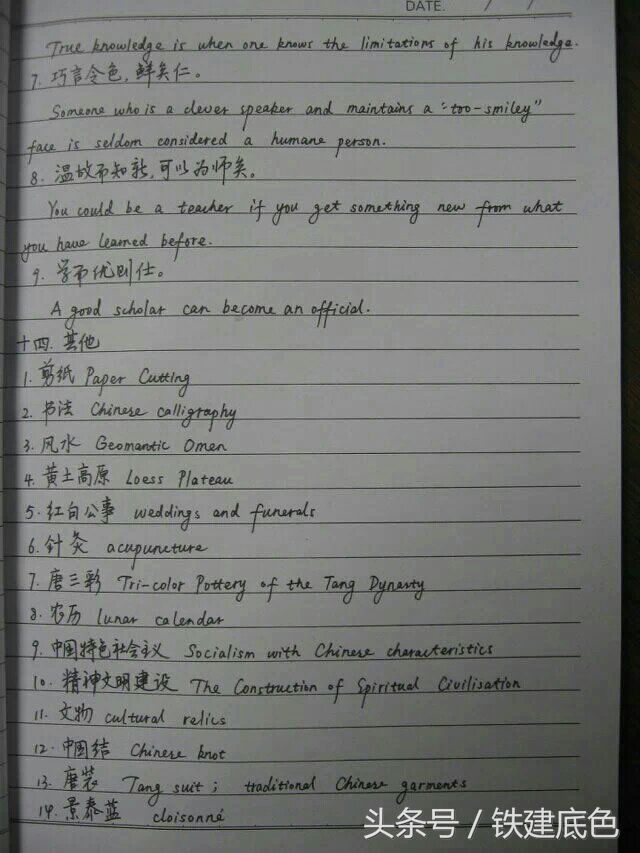 DATE. / /
True knowledge is when one knows the limitations of his knowledge.
7. 巧言令色，鲜矣仁。
Someone who is a clever speaker and maintains a "too-smiley"
face is seldom considered a humane person.
8. 温故而知新，可以为师矣。
You could be a teacher if you get something new from what
you have learned before.
9. 学而优则仕。
A good scholar can become an official.
十四. 其他
1. 剪纸 Paper Cutting
2. 书法 Chinese calligraphy
3. 风水 Geomantic Omen
4. 黄土高原 Loess Plateau
5. 红白公事 weddings and funerals
6. 针灸 acupuncture
7. 唐三彩 Tri-color Pottery of the Tang Dynasty
8. 农历 lunar calendar
9. 中国特色社会主义 Socialism with Chinese characteristics
10. 精神文明建设 The Construction of Spiritual Civilisation
11. 文物 cultural relics
12. 中国结 Chinese knot
13. 唐装 Tang suit; traditional Chinese garments
14. 景泰蓝 cloisonné
头条号 / 铁建底色